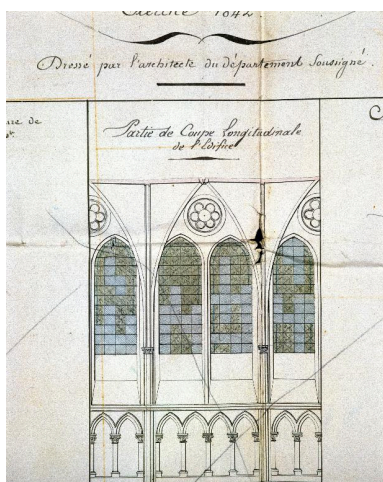 1842.
Dressé par l'architecte du département Soussigné.
ure de
Partie de Coupe Longitudinale
de l'Edifice
C